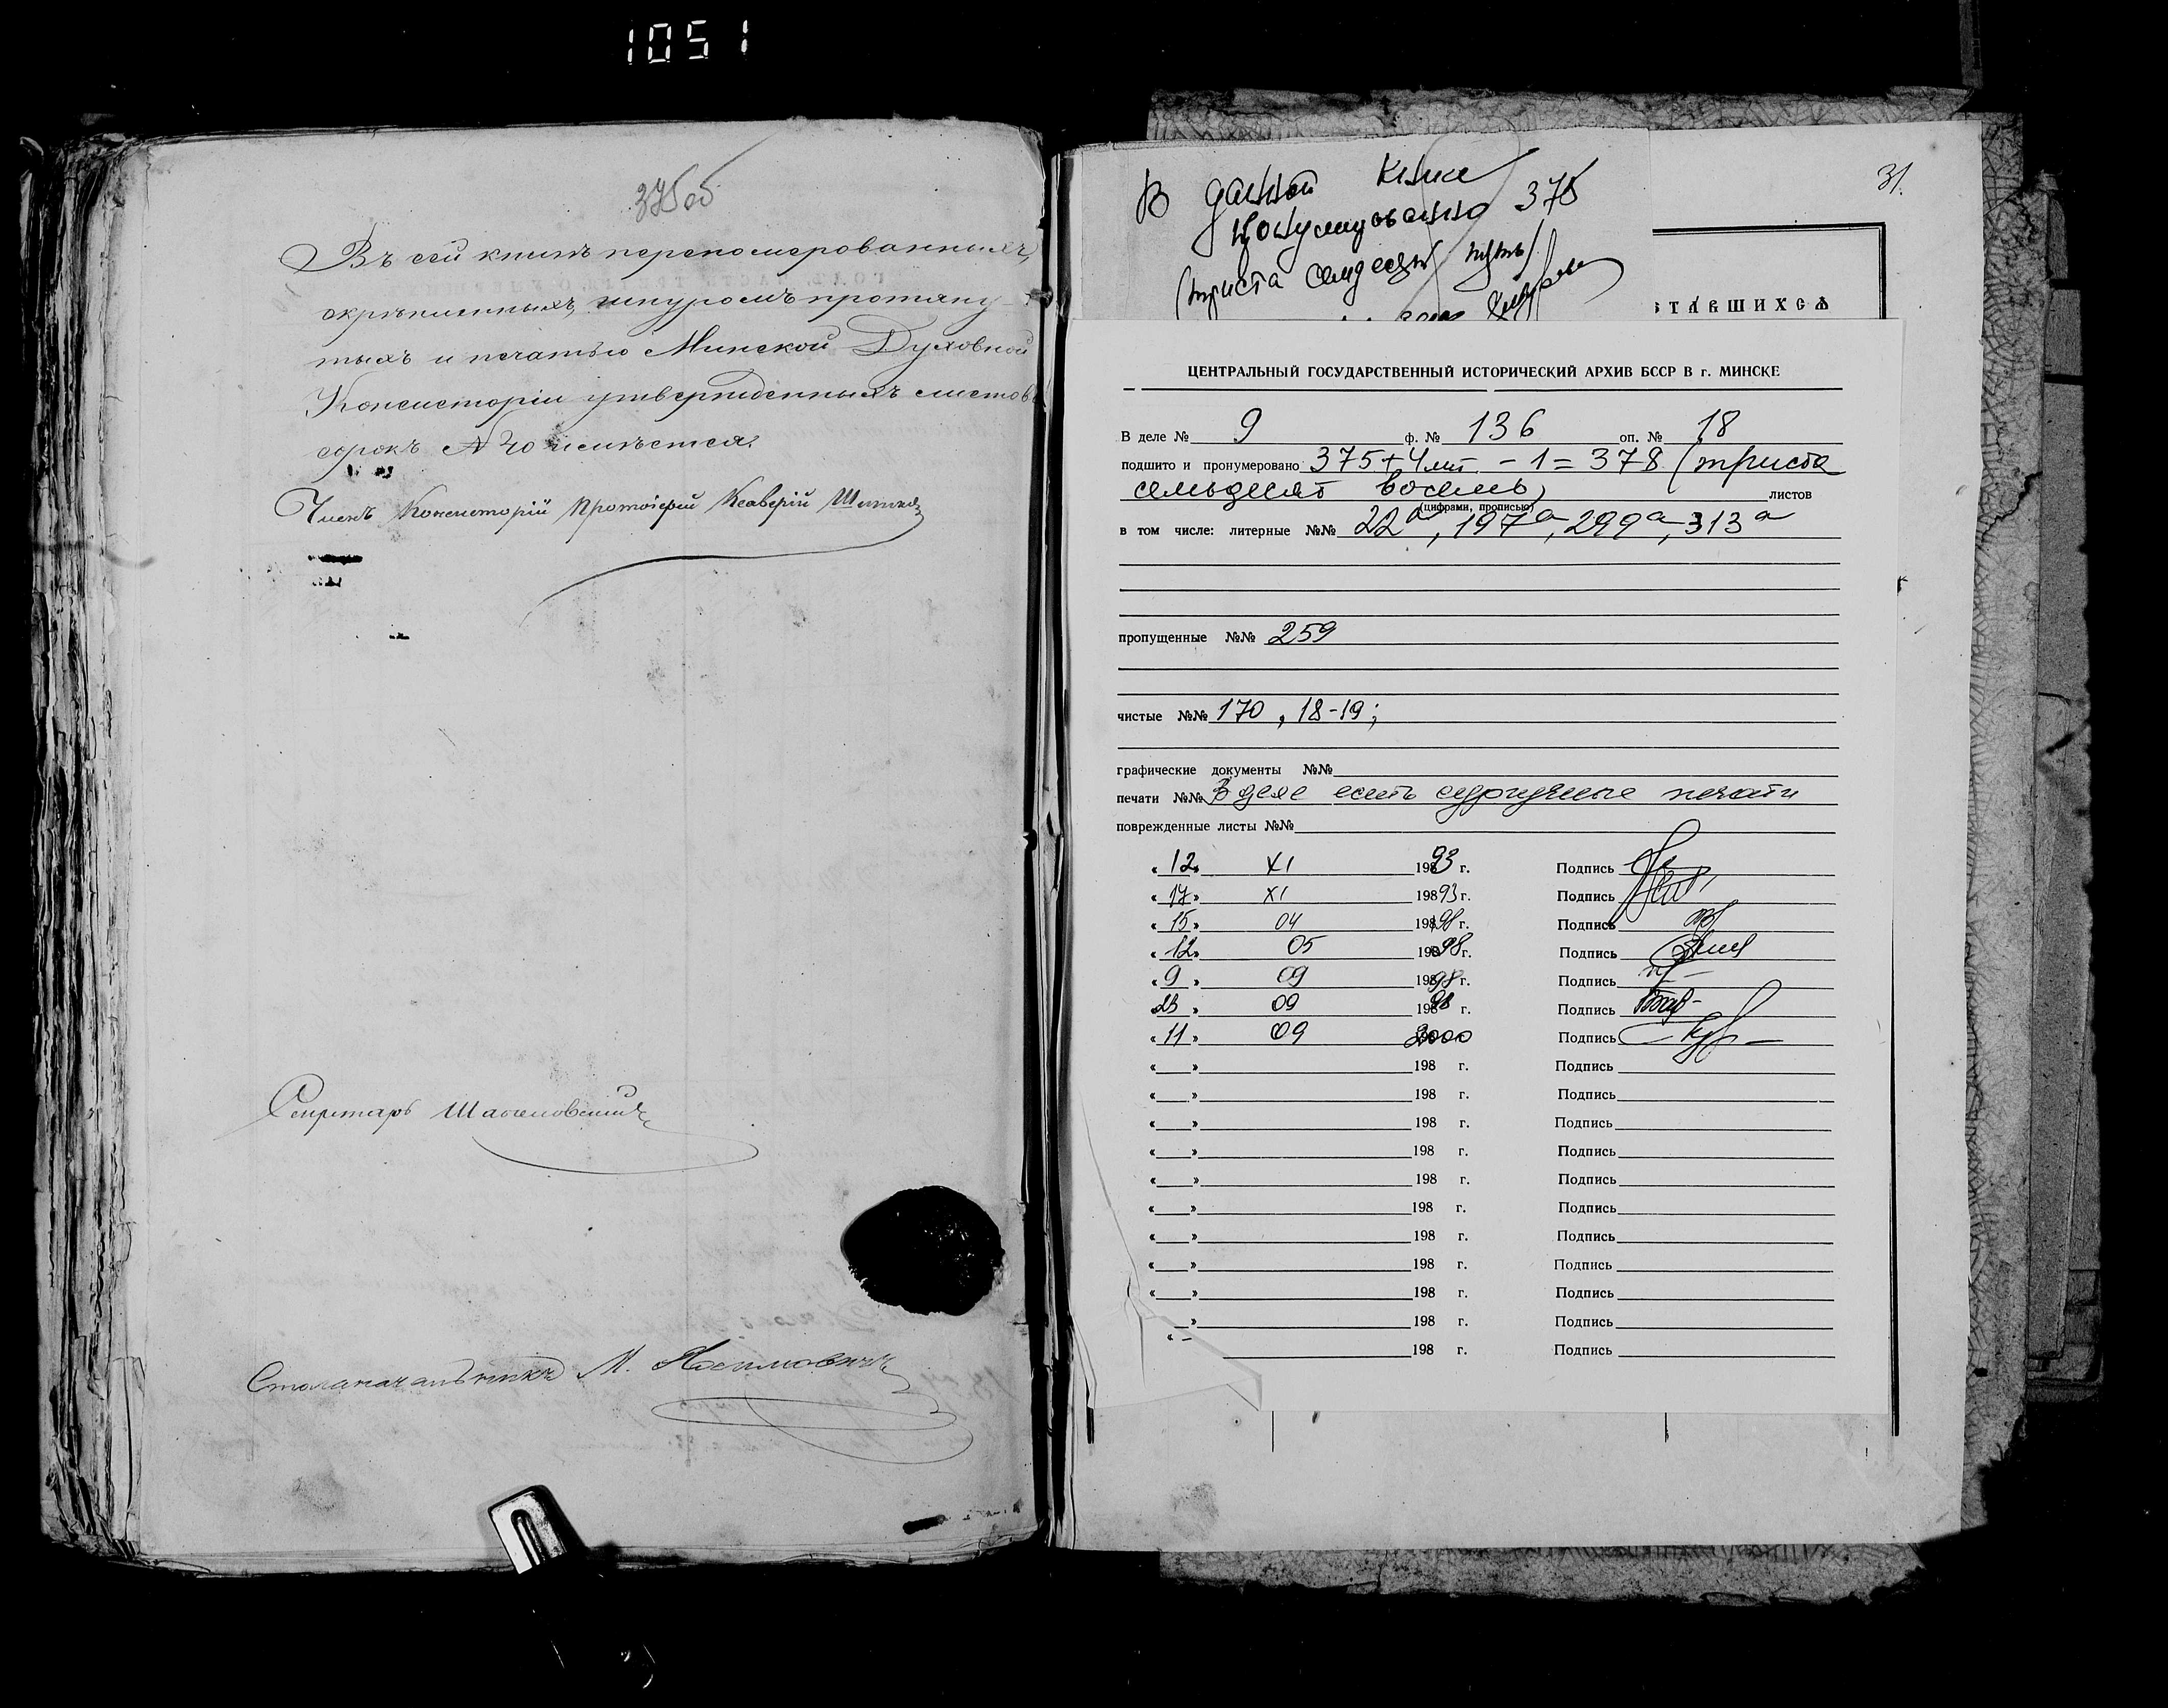 1051
375об
Въ сей книгѣ переномерованныхъ,
скрѣпленныхъ, шнуромъ протяну-
тыхъ и печатью Минской Духовной
Консисторіи утвержденныхъ листовъ
сорокъ № 40 имѣется.
Членъ Консисторіи Протоіерей Ксаверій
Секретарь
Столоначальникъ М.
31.
В данной книге
пронумеровано 375
(триста семдесят пять)
СТАВШИХСЯ
ЦЕНТРАЛЬНЫЙ ГОСУДАРСТВЕННЫЙ ИСТОРИЧЕСКИЙ АРХИВ БССР В г. МИНСКЕ
В деле № 9 ф. № 136 оп. № 18
подшито и пронумеровано 375+4лит. -1=378 (триста
семьдесят восемь) листов
(цифрами, прописью)
в том числе: литерные №№ 22а, 197а, 299а, 313а
пропущенные №№ 259
чистые №№ 170, 18-19;
графические документы №№
печати №№ В деле есть сургучные печати
поврежденные листы №№
« 12 » XI 1993 г. Подпись
« 17 » XI 19893 г. Подпись
« 15 » 04 198 98 г. Подпись
« 12 » 05 198 98 г. Подпись
« 9 » 09 198 98 г. Подпись
« 23 » 09 198 98 г. Подпись
« 11 » 09 2000 Подпись
« » 198 г. Подпись
« » 198 г. Подпись
« » 198 г. Подпись
« » 198 г. Подпись
« » 198 г. Подпись
« » 198 г. Подпись
« » 198 г. Подпись
« » 198 г. Подпись
« » 198 г. Подпись
» 198 г. Подпись
« 198 г. Подпись